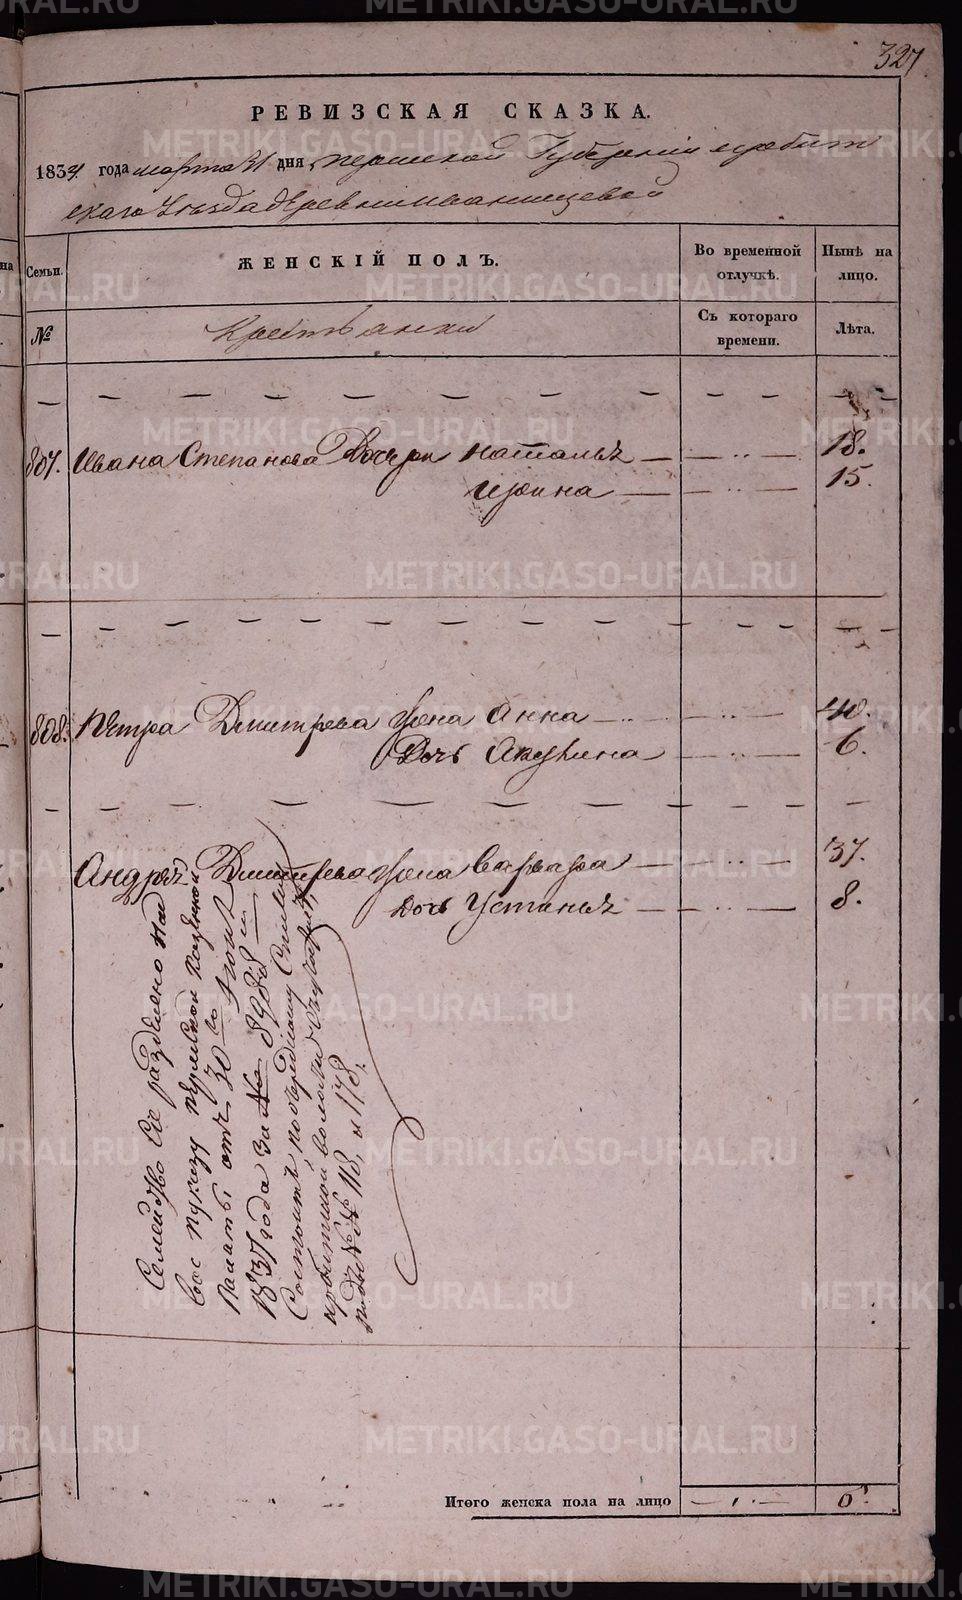 327
РЕВИЗСКАЯ СКАЗКА.
1834 года марта 31 дня, пермской Губернии ирбит
скаго Уезда деревни иванищевой
Семьи.
ЖЕНСКІЙ ПОЛЪ.
Во временной отлучкѣ.
Нынѣ на лицо.
№
Крестьянки
Съ котораго времени.
Лѣта.
807. Ивана Степанова Дочери наталья 18.
ирина 15.
808. Петра Дмитрева жена Анна 40.
Дочь Акулина 6.
Андрея Дмитрева жена Варвара 37.
дочь Устинья 8.
Семейство Сіе разделено на
пермской казенной
Палаты отъ 30
1837 года за № 8988
Состоитъ по
ирбитской волости
подъ №№ 118, и 178,
Итого женска пола на лицо 6.
METRIKI.GASO-URAL.RU